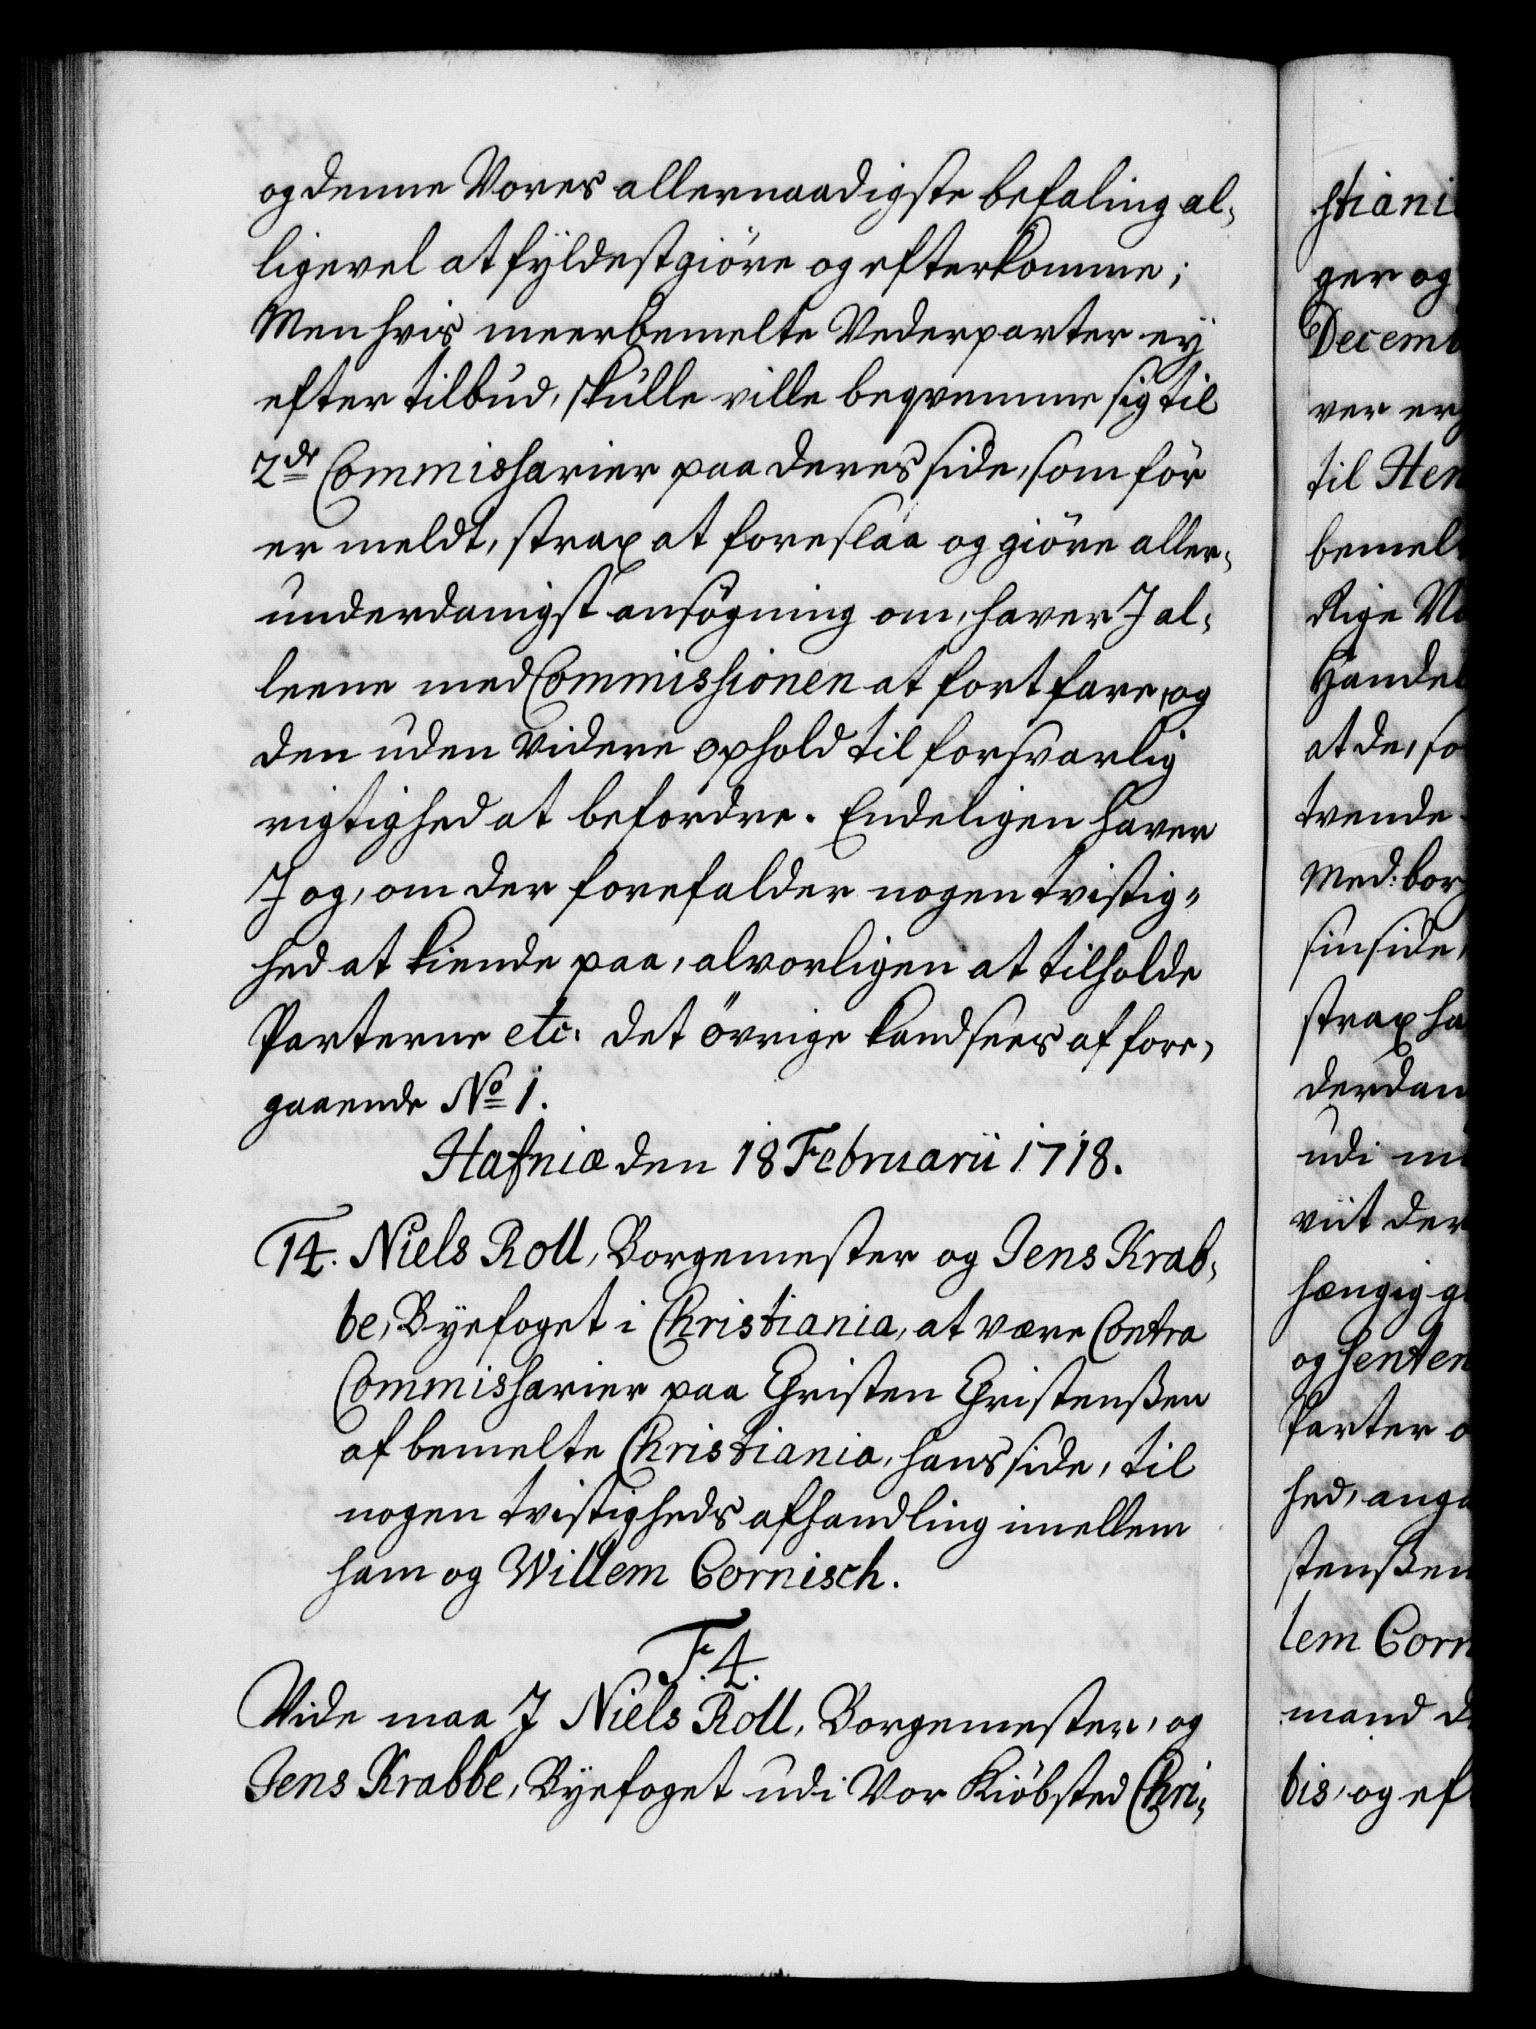 og denne Vores allernaadigste befaling al-
ligevel at fyldestgiöre og efterkomme;
Men hvis meerbemelte Vederparter ey
efter tilbud, skulle ville beqvemme sig til
2de Commissarier paa deres side, som för
er meldt, strax at foreslaa og giöre aller-
underdanigst ansögning om, haver I al-
leene med Commissionen at fortfare, og
den uden videre ophold til forsvarlig
rigtighed at befordre. Endeligen haver
I og, om der forefalder nogen tvistig-
hed at kiende paa, alvorligen at tilholde
Parterne etc: det övrige kand sees af fore-
gaaende No 1.
Hafniæ den 18 Februarii 1718.
14. Niels Roll, Borgemester og Jens Krab-
be, Byefoget i Christiania, at være Contra
Commissarier paa Christen Christenßen
af bemelte Christiania, hans side, til
nogen tvistigheds afhandling imellem
ham og Willem Cornisch.
F. 4.
Vide maa I Niels Roll, Borgemester, og
Jens Krabbe, Byefoget udi Vor Kiöbsted Chri-
stiani
ger og
Decemb
ver er
til Hen
bemel
Rige
Handel
at de, so
tvende
Med: bor
sin side,
strax ha
derdan
udi
viit der
hængig
og senten
Parter
hed, anga
stenßen
lem Corn
mand
bis, og ef